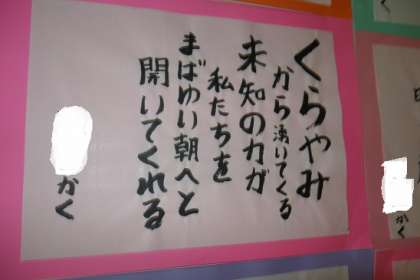 くらやみ
から湧いてくる
未知の力が
私たちを
まばゆい朝へと
開いてくれる
かく
かく
く